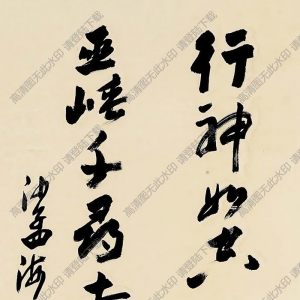 行神如空
巫峡千寻走
沙孟海
高清图无此水印 请登陆下载